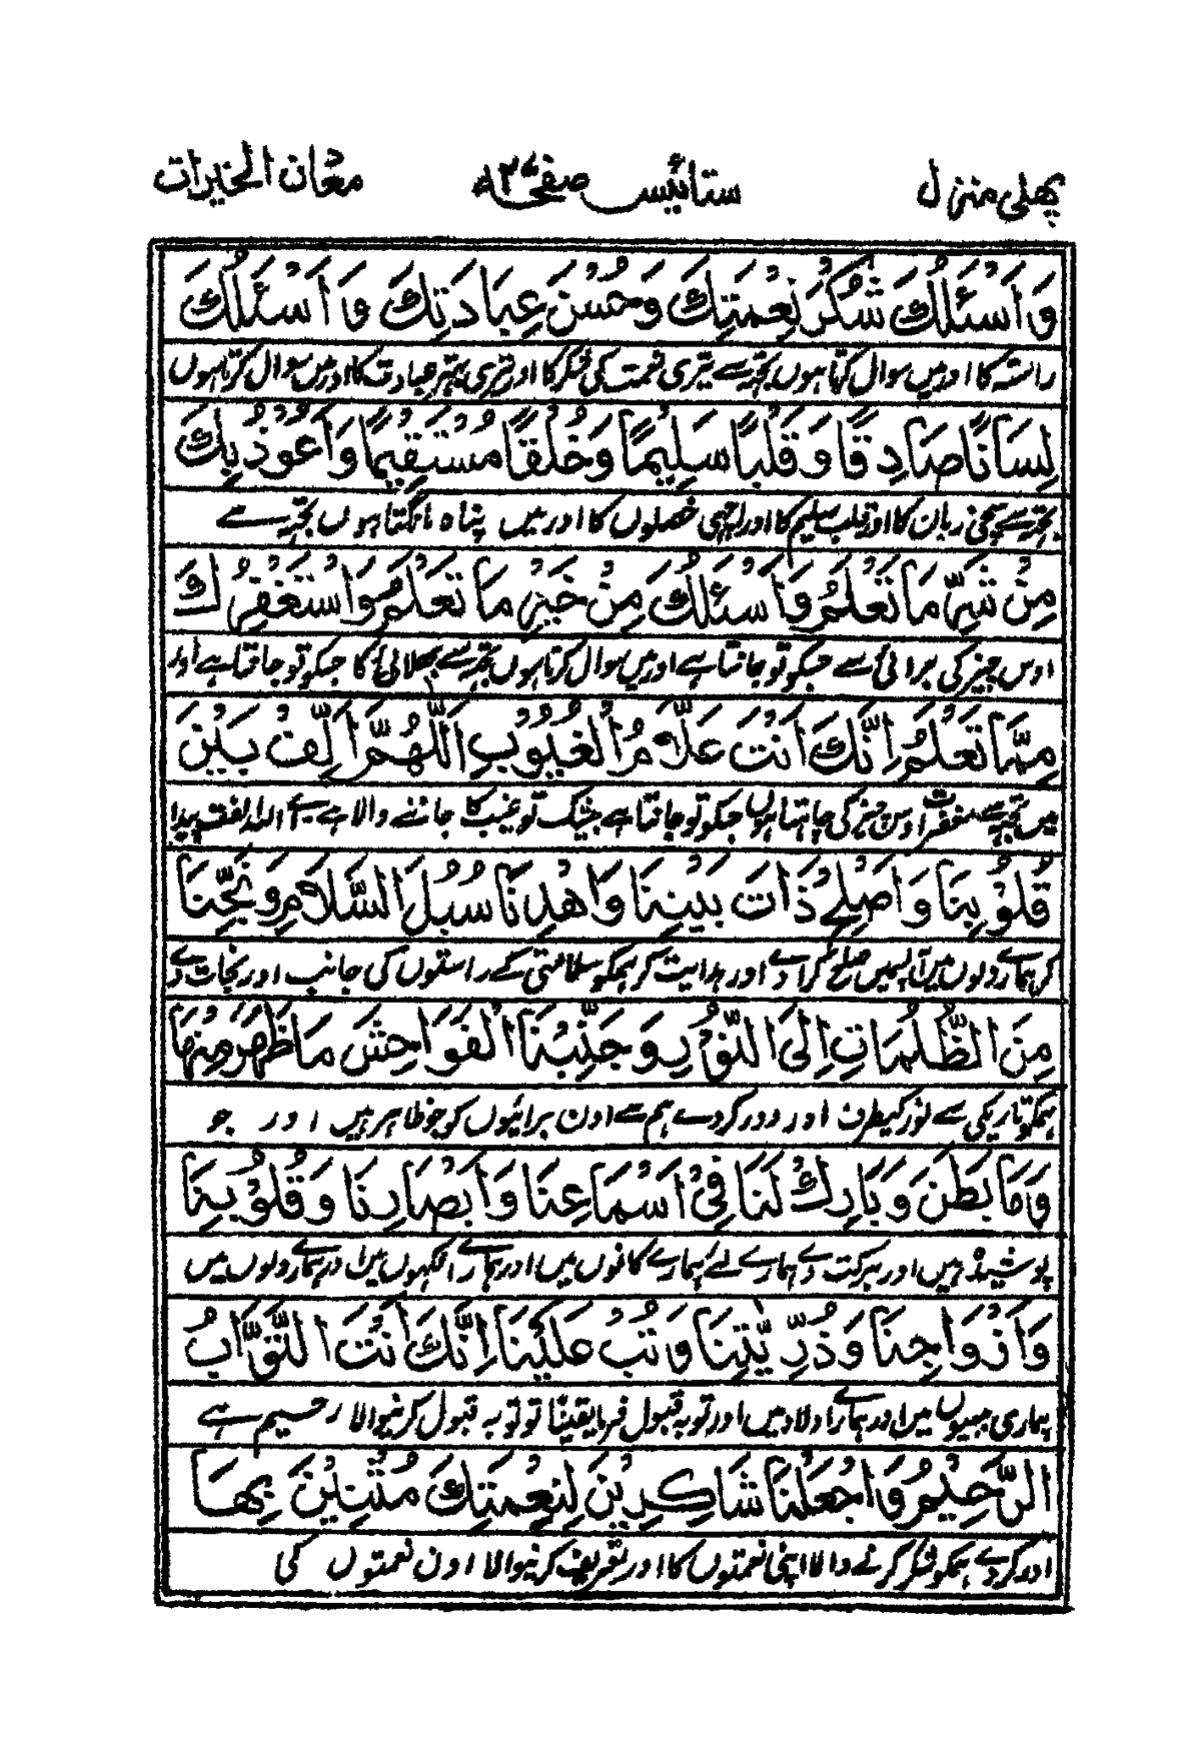 پهلی منزل ستائیس صفحه معان الخیرات
وَ اَسْئَلُكَ شُكْرَ نِعْمَتِكَ وَحُسْنَ عِبَادَتِكَ وَ اَسْئَلُكَ
راستہ کا اور میں سوال کرتا ہوں تجھ سے تیری نعمت کی شکر کا اور تیری بہتر عبادت کا اور میں سوال کرتا ہوں
لِسَانًا صَادِقًا وَ قَلْبًا سَلِيْمًا وَخُلُقًا مُسْتَقِيْمًا وَاَعُوْذُ بِكَ
تجھ سے سچی زبان کا اور قلب سلیم کا اور اچھی خصلوں کا اور میں پناہ مانگتا ہوں تجھ سے
مِنْ شَرِّ مَا تَعْلَمُ وَاَسْئَلُكَ مِنْ خَيْرِ مَا تَعْلَمُ وَاَسْتَغْفِرُكَ
اوس چیز کی برائی سے جسکو تو جانتا ہے اور میں سوال کرتا ہوں تجھ سے بھلائی کا جسکو تو جانتا ہے اور
مِمَّا تَعْلَمُ اِنَّكَ اَنْتَ عَلَّامُ الْغُيُوْبِ اَللّٰهُمَّ اَلِّفْ بَيْنَ
میں تجھ سے مغفرت اوس چیز کی چاہتا ہوں جسکو تو جانتا ہے بیشک تو غیب کا جاننے والا ہے اے اللہ الفت پیدا
قُلُوْبِنَا وَ اَصْلِحْ ذَاتَ بَيْنِنَا وَاهْدِنَا سُبُلَ السَّلَامِ وَنَجِّنَا
کر ہمارے دلوں میں آپسمیں صلح کرا دے اور ہدایت کر ہمکو سلامتی کے راستوں کی جانب اور نجات دے
مِنَ الظُّلُمَاتِ اِلَى النُّوْرِ وَ جَنِّبْنَا الْفَوَاحِشَ مَا ظَهَرَ مِنْهَا
ہمکو تاریکی سے نور کیطرف اور دور کردے ہم سے اون برائیوں کو جو ظاہر ہیں اور جو
وَمَا بَطَنَ وَ بَارِكْ لَنَا فِيْ اَسْمَاعِنَا وَ اَبْصَارِنَا وَ قُلُوْبِنَا
پوشیدہ ہیں اور برکت دے ہمارے لئے ہمارے کانوں میں اور ہمارے آنکھوں میں اور ہمارے دلوں میں
وَ اَزْوَاجِنَا وَ ذُرِّيَّتِنَا وَ تُبْ عَلَيْنَا اِنَّكَ اَنْتَ التَّوَّابُ
ہماری بیبیوں میں اور ہمارے اولاد میں اور توبہ قبول فرما یقینًا تو توبہ قبول کرنیوالا رحیم ہے
الرَّحِيْمُ وَ اجْعَلْنَا شَاكِرِيْنَ لِنِعْمَتِكَ مُثْنِيْنَ بِهَا
اور کردے ہمکو شکر کرنے والا اپنی نعمتوں کا اور تعریف کرنیوالا اون نعمتوں کی